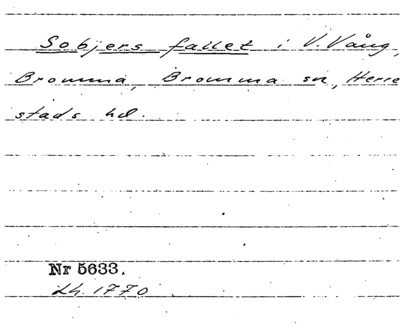 Sobjers fallet i V. Vång,
Bromma, Bromma sn, Herre
stads hd.
Nr 5633.
Lh. 1770